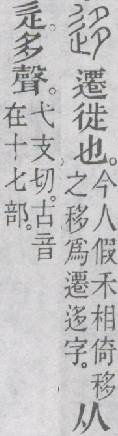 迻 遷徙也。今人假禾相倚移之移爲遷迻字。从
辵。多聲。弋支切。古音在十七部。